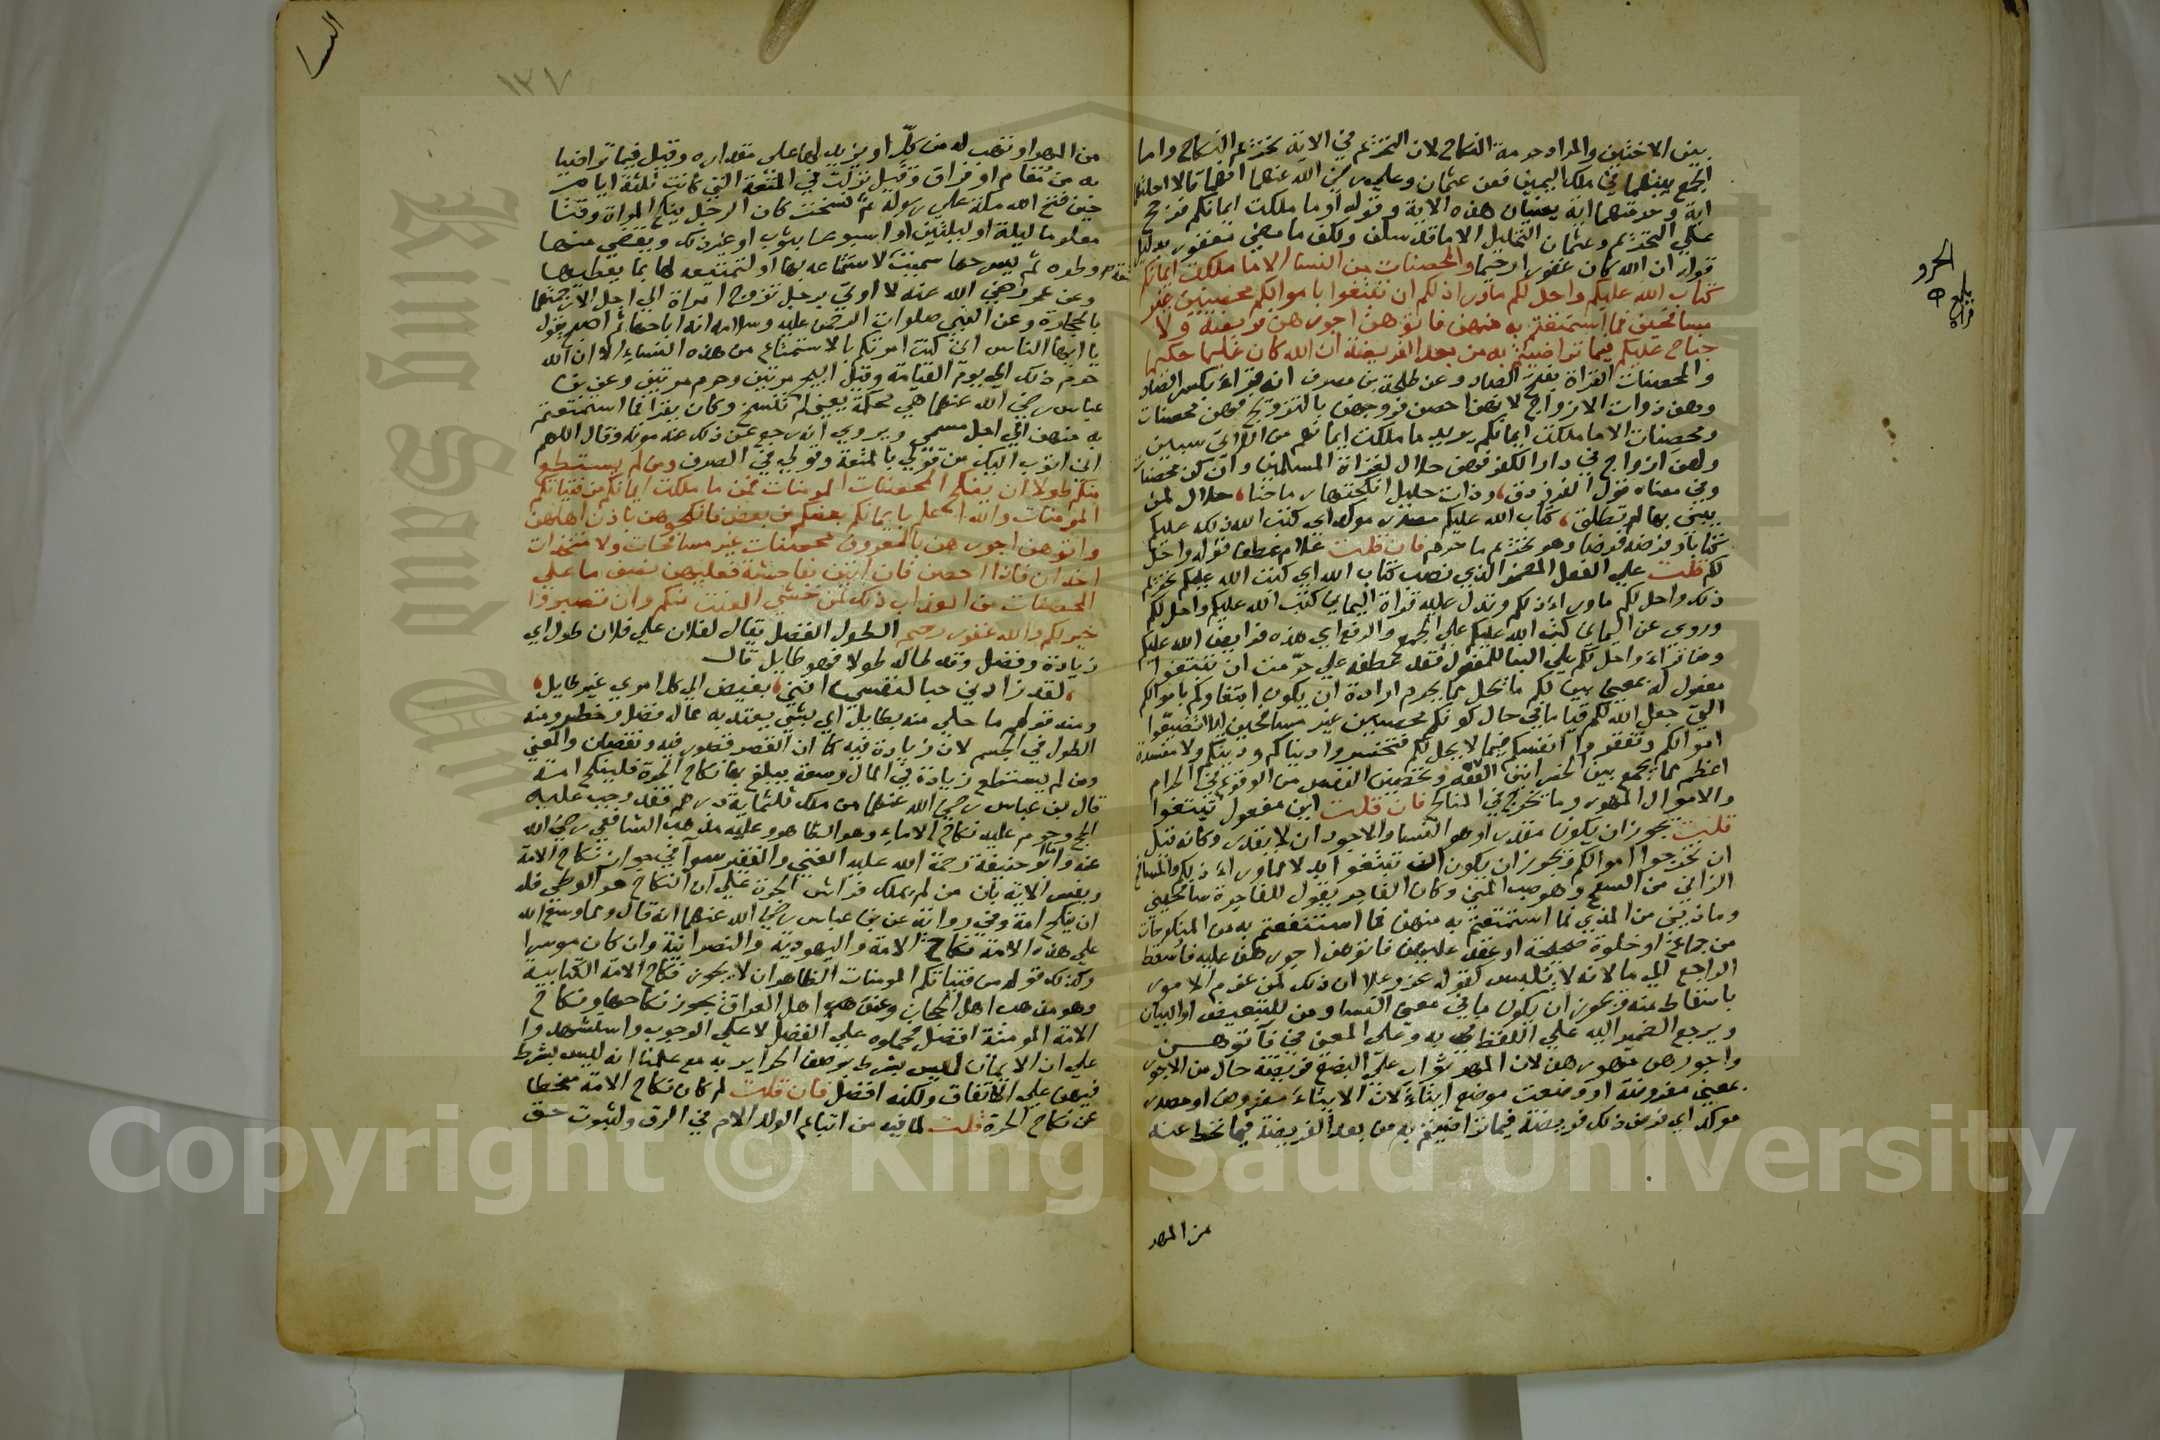 بين الاختين والمراد حرمة النكاح لان التحريم في الاية تحريم النكاح واما
الجمع بينهما في ملك اليمين فعن عثمان وعلي رضي الله عنهما انهما قالا احلتهما
اية وحرمتهما اية يعنيان هذه الاية وقوله أو ما ملكت ايمانكم فرجح
علي التحريم وعثمان التحليل الا ما قد سلف ولكن ما مضى مغفور بدليل
قوله ان الله كان غفورا رحيما والمحصنات من النسا الا ما ملكت ايمانكم
كتاب الله عليكم واحل لكم ما وراء ذلكم ان تبتغوا باموالكم محصنين غير
مسافحين فما استمتعتم به منهن فاتوهن اجورهن فريضة ولا
جناح عليكم فيما تراضيتم به من بعد الفريضة ان الله كان عليما حكيما
والمحصنات القراة بفتح الصاد وعن طلحة بن مصرف انه قراء بكسر الصاد
وهن ذوات الازواج لانهن احصن فروجهن بالتزويج فهن محصنات
ومحصنات الا ما ملكت ايمانكم يريد ما ملكت ايمانهم من اللاتي سبين
ولهن ازواج في دار الكفر فهن حلال لغزاة المسلمين وان كن محصنات
وفي معناه قول الفرزدق وذات حليل انكحتها رماحنا حلال لمن
يبني بها لم تطلق كتاب الله عليكم مصدر موكد اي كتب الله ذلك عليكم
كتابا وفرضه فرضا وهو تحريم ما حرم فان قلت علام عطف قوله واحل
لكم قلت علي الفعل المضمر الذي نصب كتاب الله اي كتب الله عليكم تحريم
ذلك واحل لكم ما وراء ذلكم وتدل عليه قراة اليماني كتب الله عليكم واحل لكم
وروي عن اليماني كتب الله عليكم علي الجمع والرفع اي هذه فرايض الله عليكم
ومن قراء واحل لكم علي البنا للمفعول فقد عطفه علي حرمت ان تبتغوا
مفعول له بمعنى بين لكم ما يحل مما يحرم ارادة ان يكون ابتغاوكم باموالكم
التي جعل الله لكم قياما في حال كونكم محصنين غير مسافحين ليلا تضيعوا
اموالكم وتفقروا انفسكم فيما لا يحل لكم فتخسروا دنياكم ودينكم ولا مفسدة
اعظم مما يجمع بين الخسرانين العفة وتحصين النفس من الوقوع في الحرام
والاموال المهور وما يخرج في المناكح فان قلت اين مفعول تبتغوا
قلت يجوز ان يكون مقدرا وهو النسا والاجود ان لا يقدر وكانه قيل
ان تخرجوا اموالكم ويجوز ان يكون ان تبتغوا بدلا مما وراء ذلكم والمسافح
الزاني من السفح وهو صب المني وكان الفاجر يقول للفاجرة سافحيني
وماذيني من المذي فما استمتعتم به منهن فما استنفعتم به من المنكوحات
من جماع او خلوة صحيحة او عقد عليهن فاتوهن اجورهن عليه فاسقط
الراجع الي ما لانه لا يلبس كقوله عز وعلا ان ذلك لمن عزم الامور
باسقاط منه ويجوز ان يكون ما في معنى النسا ومن للتبعيض او البيان
ويرجع الضمير اليه علي اللفظ في به وعلي المعنى في فاتوهن
واجورهن مهورهن لان المهر ثواب علي البضع فريضة حال من الاجور
بمعنى مفروضة او وضعت موضع ايتاء لان الايتاء مفروض او مصدر
موكد اي فرض ذلك فريضة فيما تراضيتم به من بعد الفريضة فيما تحط عنه
من المهر
بلغ
قراة
١٣٧
النسا
من المهر او تهب له من كله او يزيد لها علي مقداره وقيل فيما تراضيا
به من مقام او فراق وقيل نزلت في المتعة التي كانت ثلثة ايام
حين فتح الله مكة علي رسوله ثم نسخت كان الرجل ينكح المراة وقتا
معلوما ليلة او ليلتين او اسبوعا بثوب او غير ذلك ويقضي منها
وطره ثم يسرحها سميت لاستمتاعه بها او لتمتيعه لها بما يعطيها
وعن عمر رضي الله عنه لا اوتي برجل تزوج امراة الي اجل الا رجمتهما
بالحجارة وعن النبي صلوات الرحمن عليه وسلامه انه اباحها ثم اصبح يقول
يا ايها الناس اني كنت امرتكم بالاستمتاع من هذه النساء الا ان الله
حرم ذلك الي يوم القيامة وقيل ابيح مرتين وحرم مرتين وعن بن
عباس رضي الله عنهما هي محكمة يعني لم تنسخ وكان يقرا فما استمتعتم
به منهن الي اجل مسمي ويروي انه رجع عن ذلك عند موته وقال اللهم
اني اتوب اليك من قولي بالمتعة وقولي في الصرف ومن لم يستطع
منكم طولا ان ينكح المحصنات المومنات فمن ما ملكت ايمانكم من فتياتكم
المومنات والله اعلم بايمانكم بعضكم من بعض فانكحوهن باذن اهلهن
واتوهن اجورهن بالمعروف محصنات غير مسافحات ولا متخذات
اخدان فاذا احصن فان اتين بفاحشة فعليهن نصف ما علي
المحصنات من العذاب ذلك لمن خشي العنت منكم وان تصبروا
خير لكم والله غفور رحيم الطول الفضل يقال لفلان علي فلان طول اي
زيادة وفضل وقد طاله طولا فهو طايل قال
لقد زادني حبا لنفسي انني بغيض الي كل امرئ غير طايل
ومنه قولهم ما حلي منه بطايل اي بشي يعتد به مما له فضل وخطر ومنه
الطول في الجسم لانه زيادة فيه كما ان القصر قصور فيه ونقصان والمعني
ومن لم يستطع زيادة في المال وسعة يبلغ بها نكاح الحرة فلينكح امة
قال بن عباس رضي الله عنهما من ملك ثلثماية درهم فقد وجب عليه
الحج وحرم عليه نكاح الاماء وهو الظاهر وعليه مذهب الشافعي رضي الله
عنه واما ابو حنيفة رحمة الله عليه الغني والفقير سوا في جواز نكاح الامة
ويفسر الاية بان من لم يملك فراش الحرة علي ان النكاح هو الوطي فله
ان ينكح امة وفي رواية عن بن عباس رضي الله عنهما انه قال ومما وسع الله
علي هذه الامة نكاح الامة واليهودية والنصرانية وان كان موسرا
وكذلك قوله من فتياتكم المومنات الظاهر ان لا يجوز نكاح الامة الكتابية
وهو مذهب اهل الحجاز وعند اهل العراق يجوز نكاحها ونكاح
الامة المومنة افضل فحملوه علي الفضل لا علي الوجوب واستشهدوا
علي ان الايمان ليس بشرط بوصف الحراير به مع علمنا انه ليس بشرط
فيهن علي الاتفاق ولكنه افضل فان قلت لم كان نكاح الامة منحطا
عن نكاح الحرة قلت لما فيه من اتباع الولد الام في الرق ولثبوت حق
King Saud University
Copyright © King Saud University